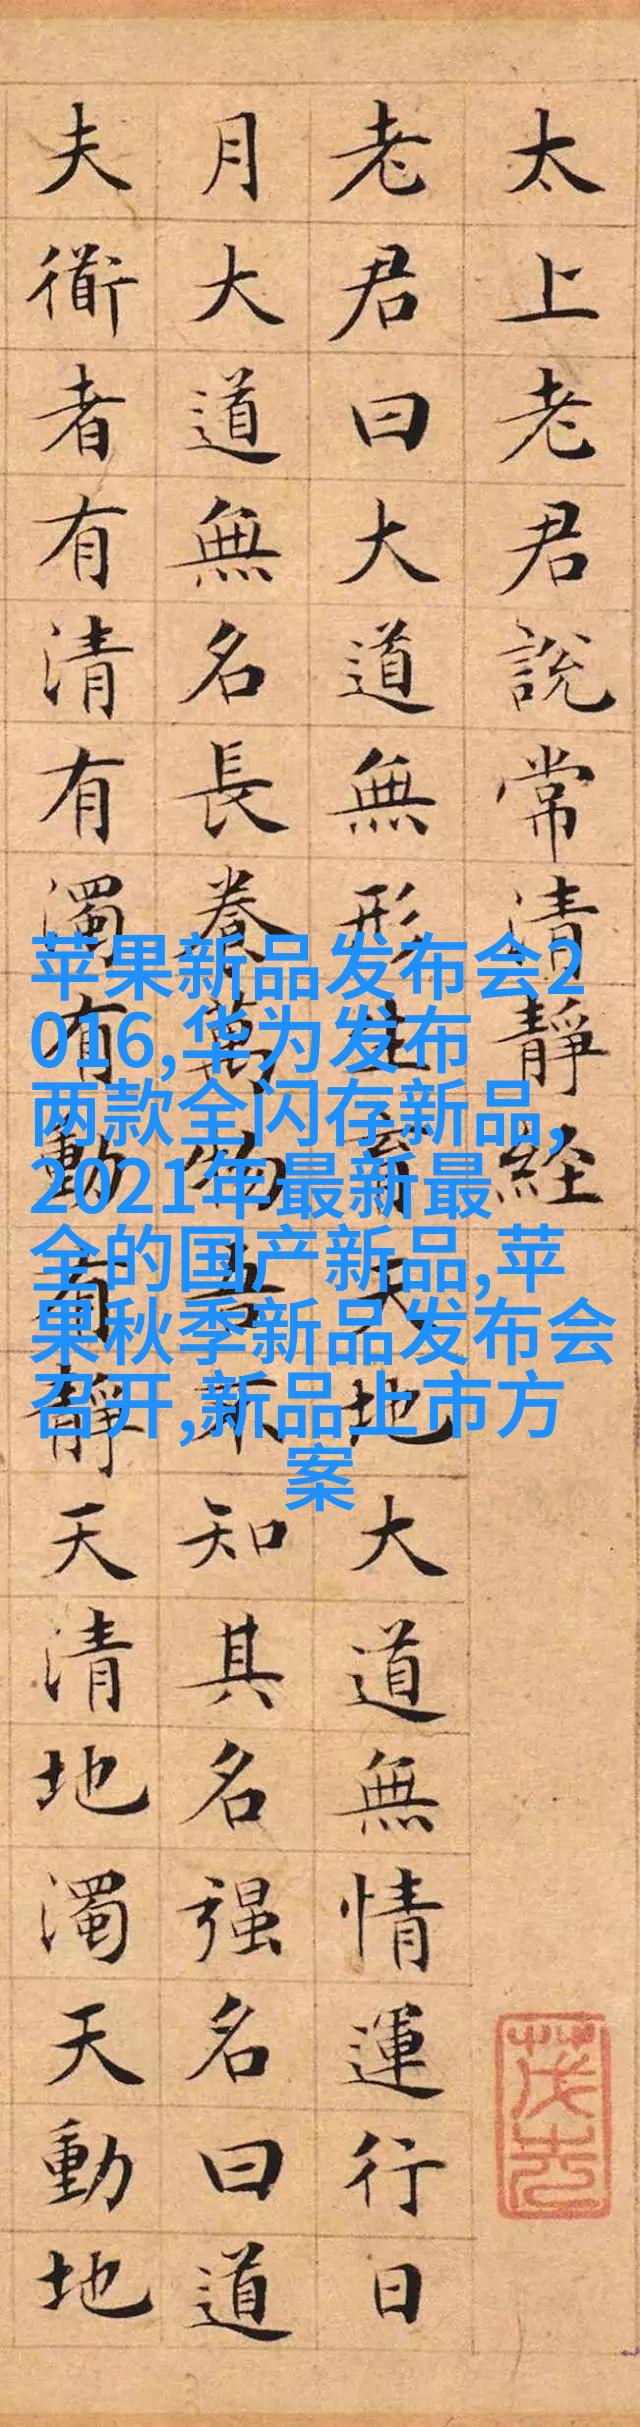 太上老君說常清靜経
老君曰大道無形生育天地大道無情運行日
月大道無名長養萬物吾不知其名强名曰道
夫衜者有清有濁有動有靜天清地濁天動地
苹果新品发布会2
016,华为发布
两款全闪存新品,
2021年最新最
全的国产新品,苹
果秋季新品发布会
召开,新品上市方
案